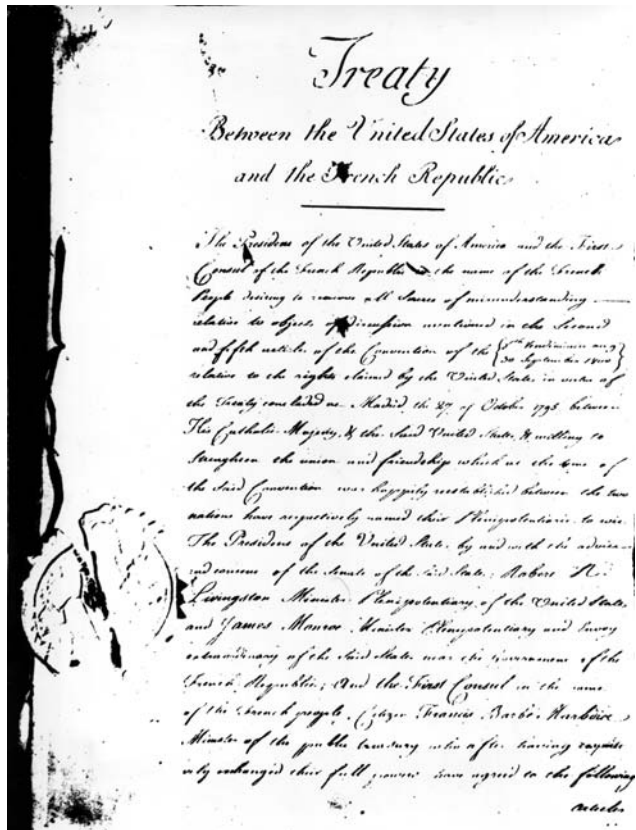 Treaty
Between the United States of America
and the French Republic
The President of the United States of America and the First
Consul of the French Republic in the name of the French
People desiring to remove all Source of misunderstanding
relative to objects of discussion mentioned in the Second
and fifth articles of the Convention of the { 8th Vendémiaire an 9 30 September 1800 }
relative to the rights claimed by the United States in virtue of
the Treaty concluded at Madrid the 27 of October 1795, between
His Catholic Majesty, & the Said United States, & willing to
Strengthen the union and friendship which at the time of
the Said Convention was happily reestablished between the two
nations have respectively named their Plenipotentiaries to wit
The President of the United States, by and with the advice
and consent of the Senate of the said States; Robert R.
Livingston Minister Plenipotentiary of the United States
and James Monroe Minister Plenipotentiary and Envoy
extraordinary of the Said States near the Government of the
French Republic; And the First Consul in the name
of the French people, Citizen Francis Barbé Marbois
Minister of the public treasury who after having respecti
vely exchanged their full powers have agreed to the following
articles